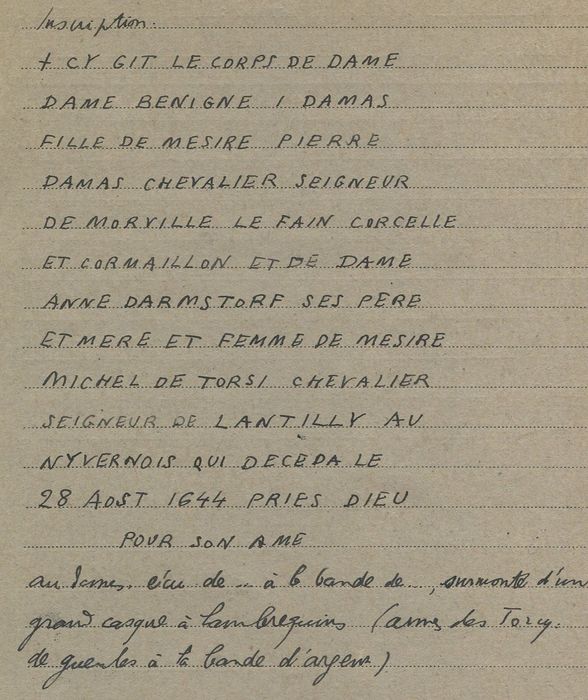 Inscription.
+ CY GIT LE CORPS DE DAME
DAME BENIGNE I DAMAS
FILLE DE MESIRE PIERRE
DAMAS CHEVALIER SEIGNEUR
DE MORVILLE LE FAIN CORCELLE
ET CORMAILLON ET DE DAME
ANNE DARMSTORF SES PERE
ET MERE ET FEMME DE MESIRE
MICHEL DE TORSI CHEVALIER
SEIGNEUR DE LANTILLY AU
NYVERNOIS QUI DECEDA LE
28 AOST 1644 PRIES DIEU
POUR SON AME
au dessus. écu de .. à la bande de .., surmonté d'un
grand casque à lambrequins (armes des Torcy.
de gueules à la bande d'argent)